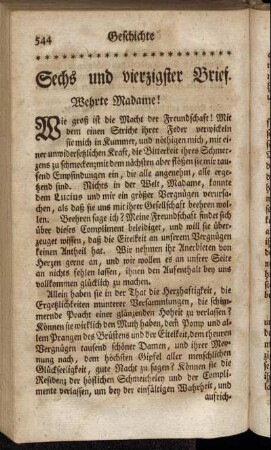 544 Geschichte
Sechs und vierzigster Brief.
Wehrte Madame!
Wie groß ist die Macht der Freundschaft! Mit
dem einen Striche ihrer Feder verwickeln
sie mich in Kummer, und nöthigen mich, mit ei-
ner unwidersetzlichen Kraft, die Bitterkeit ihres Schmer-
zens zu schmecken; mit dem nächsten aber flößen sie mir tau-
send Empfindungen ein, die alle angenehm, alle erge-
tzend sind. Nichts in der Welt, Madame, konnte
dem Lucius und mir ein größer Vergnügen verursa-
chen, als daß sie uns mit ihrer Gesellschaft beehren wol-
len. Beehren sage ich? Meine Freundschaft findet sich
über dieses Compliment beleidiget, und will sie über-
zeuget wissen, daß die Eitelkeit an unserem Vergnügen
keinen Antheil hat. Wir nehmen ihr Anerbieten von
Herzen gerne an, und wir wollen es an unsrer Seite
an nichts fehlen lassen, ihnen den Aufenthalt bey uns
vollkommen glücklich zu machen.
Allein haben sie in der That die Herzhaftigkeit, die
Ergetzlichkeiten munterer Versammlungen, die schim-
mernde Pracht einer glänzenden Hoheit zu verlassen?
Können sie wirklich den Muth haben, dem Pomp und al-
lem Prangen des Brüstens und der Eitelkeit, dem theuren
Vergnügen tausend schöner Damen, und ihrer Mey-
nung nach, dem höchsten Gipfel aller menschlichen
Glückseligkeit, gute Nacht zu sagen? Können sie die
Residenz der höflichen Schmeicheley und der Compli-
mente verlassen, um bey der einfältigen Wahrheit, und
aufrich-